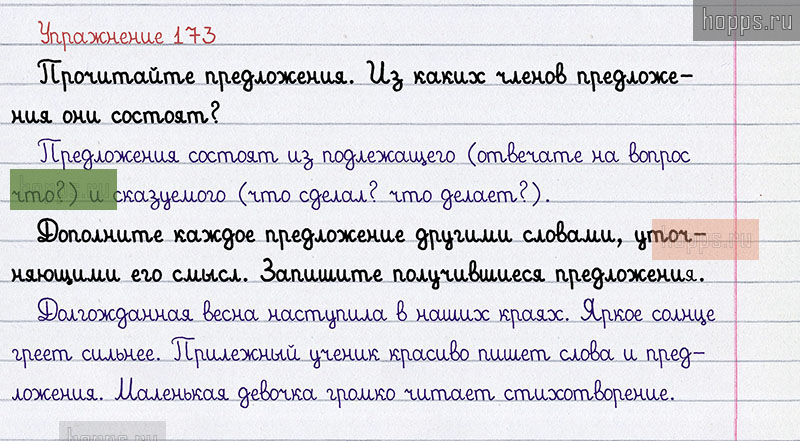 hopps.ru
Упражнение 173
Прочитайте предложения. Из каких членов предложе-
ния они состоят?
Предложения состоят из подлежащего (отвечате на вопрос
что?) и сказуемого (что сделал? что делает?).
Дополните каждое предложение другими словами, уточ-
няющими его смысл. Запишите получившиеся предложения.
Долгожданная весна наступила в наших краях. Яркое солнце
греет сильнее. Прилежный ученик красиво пишет слова и пред-
ложения. Маленькая девочка громко читает стихотворение.
hopps.ru